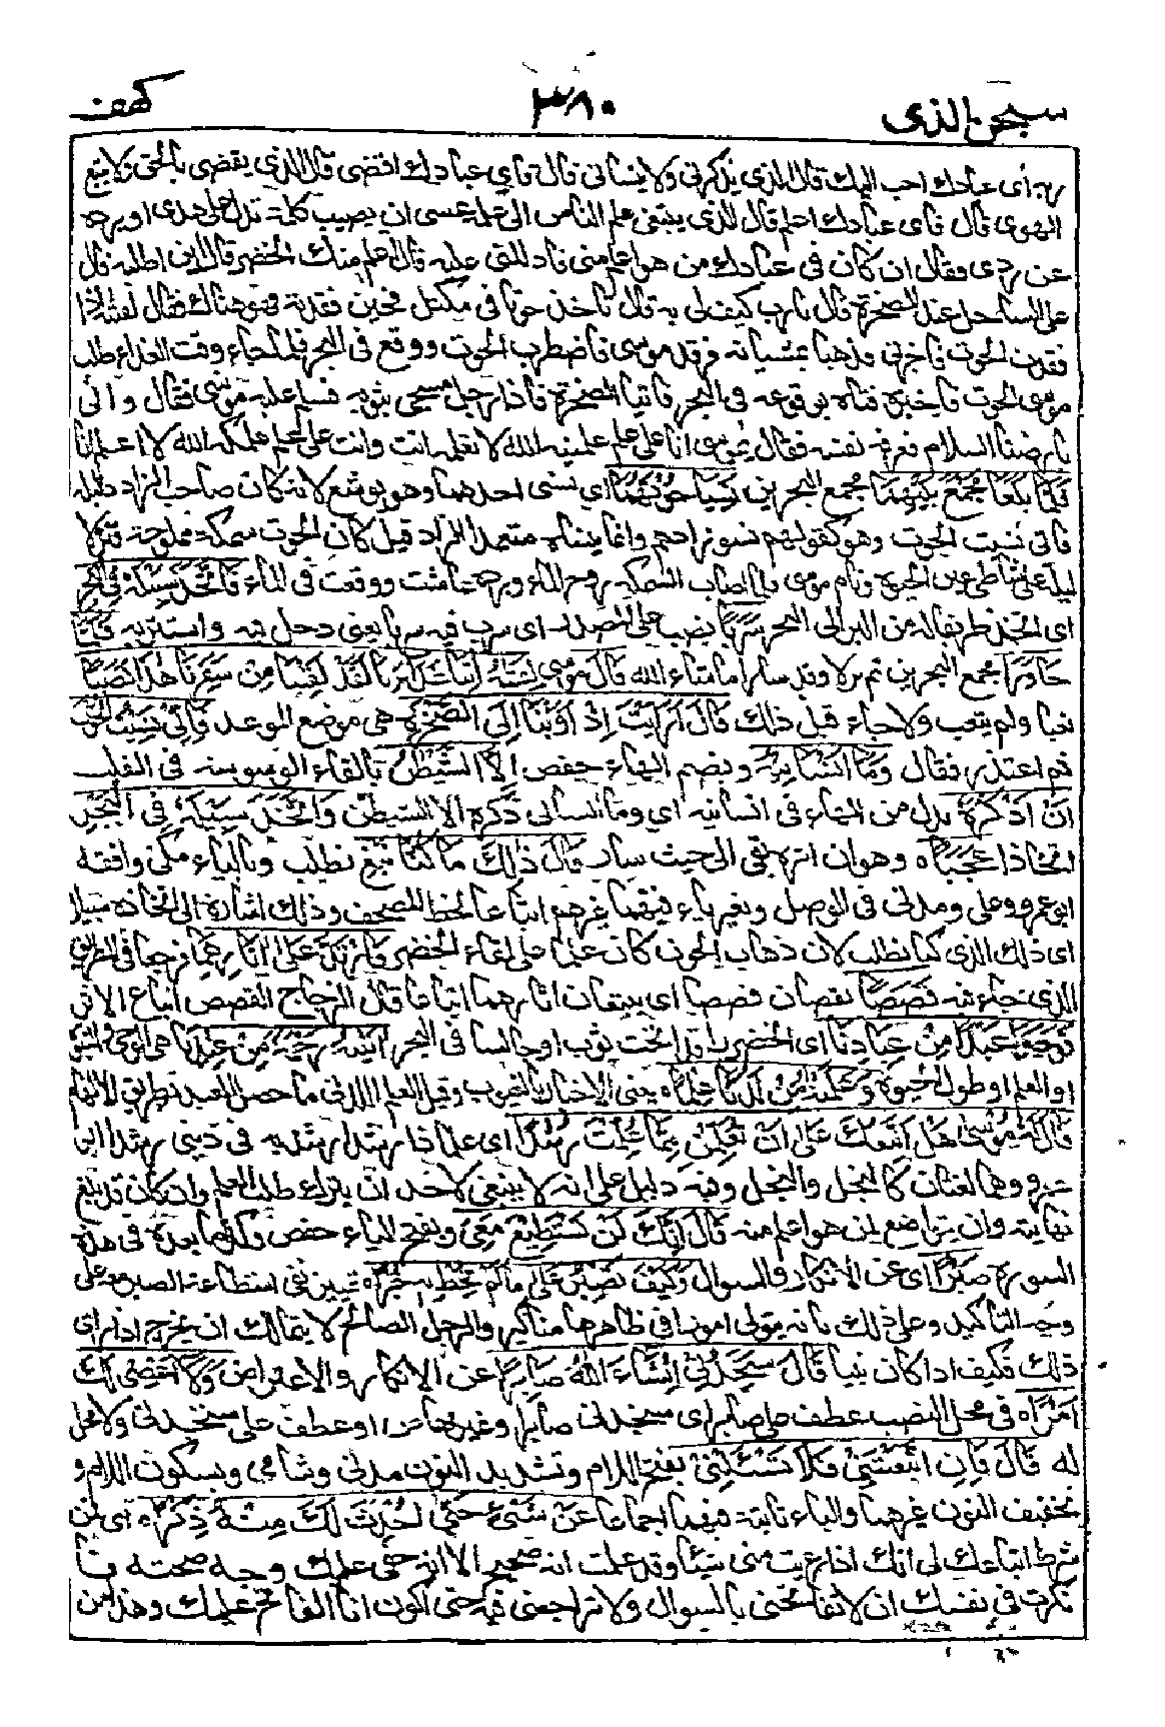 سبحن الذي ٣٨٠ كهف
ربه أي عبادك احب اليك قال الذي يذكرني ولا ينساني قال فاي عبادك اقضى قال الذي يقضى بالحق ولا يتبع
الهوى قال فاى عبادك اعلم قال الذي يبتغى علم الناس الى علمه عسى ان يصيب كلمة تدل على هدى او ترده
عن ردى فقال ان كان في عبادك من هو اعلم منى فادللني عليه قال اعلم منك الخضر قال اين اطلبه قال
على الساحل عند الصخرة قال يا رب كيف لى به قال تاخذ حوتا في مكتل فحين فقدته فهو هناك فقال لفته اذا
فقدت الحوت فاخبرني فذهبا يمشيان فرقد موسى فاضطرب الحوت ووقع فى البحر فلما جاء وقت الغداء طلب
موسى الحوت فاخبره فتاه بوقوعه فى البحر فاتيا الصخرة فاذا رجل مسجى بثوبه فسلم عليه موسى فقال وانى
بارضنا السلام فعرفه نفسه فقال يموسى انا على علم علمنيه الله لا تعلمه انت وانت على علم علمكه الله لا اعلمه انا
فَلَمَّا بَلَغَا مَجْمَعَ بَيْنِهِمَا مجمع البحرين نَسِيَا حُوْتَهُمَا اى نسى احدهما وهو يوشع لانه كان صاحب الزاد دليله
فانى نسيت الحوت وهو كقولهم نسوا زادهم وانما ينساه متعهد الزاد قيل كان الحوت سمكة مملوحة فنزلا
ليلة على شاطئ عين الحيوة ونام موسى فلما اصاب السمكة روح الماء وبرده عاشت ووقعت فى الماء فَاتَّخَذَ سَبِيْلَهُ فِى الْبَحْرِ
اى اتخذ طريقا له من البر الى البحر سَرَبًا نصب على المصدر اى سرب فيه سربا يعنى دخل فيه واستتر به فَلَمَّا
جَاوَزَا مجمع البحرين ثم نزلا وقد سارا ما شاء الله قَالَ موسى لِفَتٰهُ اٰتِنَا غَدَآءَنَا لَقَدْ لَقِيْنَا مِنْ سَفَرِنَا هٰذَا نَصَبًا
تعبا ولم يتعب ولا جاع قبل ذلك قَالَ اَرَاَيْتَ اِذْ اَوَيْنَا اِلَى الصَّخْرَةِ هى موضع الموعد فَاِنِّىْ نَسِيْتُ الْحُوْتَ
ثم اعتذر فقال وَمَا اَنْسٰنِيْهُ وبضم الهاء حفص اِلَّا الشَّيْطٰنُ بالقاء الوسوسة فى القلب
اَنْ اَذْكُرَهٗ بدل من الهاء فى انسانيه اى وما انسانى ذكره الا الشيطن وَاتَّخَذَ سَبِيْلَهٗ فِى الْبَحْرِ
اتخاذا عَجَبًا ه وهو ان اثره بقى الى حيث سار قَالَ ذٰلِكَ مَا كُنَّا نَبْغِ نطلب وبالياء مكى وافقه
ابو عمرو وعلى ومدنى فى الوصل وبغير ياء فيهما غيرهم اتباعا لخط المصحف وذلك اشارة الى اتخاذه سبيلا
اى ذلك الذى كنا نطلب لان ذهاب الحوت كان علما على لقاء الخضر فَارْتَدَّا عَلٰى اٰثَارِهِمَا فرجعا فى الطريق
الذى جاءا فيه قَصَصًا يقصان قصصا اى يتبعان اثارهما اتباعا قال الزجاج القصص اتباع الاثر
فَوَجَدَا عَبْدًا مِنْ عِبَادِنَا اى الخضر راقدا تحت ثوب او جالسا فى البحر اٰتَيْنٰهُ رَحْمَةً مِنْ عِنْدِنَا هى الوحى والنبوة
او العلم او طول الحيوة وَعَلَّمْنٰهُ مِنْ لَدُنَّا عِلْمًا ه يعنى الاخبار بالغيوب وقيل العلم اللدنى ما حصل للعبد بطريق الالهام
قَالَ لَهٗ مُوْسٰى هَلْ اَتَّبِعُكَ عَلٰى اَنْ تُعَلِّمَنِ مِمَّا عُلِّمْتَ رُشْدًا اى علما ذا رشد ارشد به فى دينى رشدا ابو
عمرو وهما لغتان كالبخل والبخل وفيه دليل على انه لا ينبغى لاحد ان يترك طلب العلم وان كان قد بلغ
نهايته وان يتواضع لمن هو اعلم منه قَالَ اِنَّكَ لَنْ تَسْتَطِيْعَ مَعِىَ وبفتح الياء حفص وكذا ما بعده فى هذه
السورة صَبْرًا اى عن الانكار والسوال وَكَيْفَ تَصْبِرُ عَلٰى مَا لَمْ تُحِطْ بِهٖ خُبْرًا ه تمييز نفى استطاعة الصبر معه على
وجه التاكيد وعلل ذلك بانه يتولى امورا هى فى ظاهرها مناكير والرجل الصالح لا يتمالك ان يجزع اذا راى
ذلك فكيف اذا كان نبيا قَالَ سَتَجِدُنِىْ اِنْ شَآءَ اللّٰهُ صَابِرًا عن الانكار والاعتراض وَّلَا اَعْصِىْ لَكَ
اَمْرًا ه فى محل النصب عطف على صابرا اى ستجدنى صابرا وغير عاص او عطف على ستجدنى ولا محل
له قَالَ فَاِنِ اتَّبَعْتَنِىْ فَلَا تَسْئَلْنِىْ بفتح اللام وتشديد النون مدنى وشامى وبسكون اللام و
تخفيف النون غيرهما والياء ثابتة فيهما اجماعا عَنْ شَىْءٍ حَتّٰى اُحْدِثَ لَكَ مِنْهُ ذِكْرًا ه اى فمن
شرط اتباعك لى انك اذا رايت منى شيئا وقد علمت انه صحيح الا انه خفى عليك وجه صحته فا
نكرت فى نفسك ان لا تفاتحنى بالسوال ولا تراجعنى فيه حتى اكون انا الفاتح عليك وهذا من